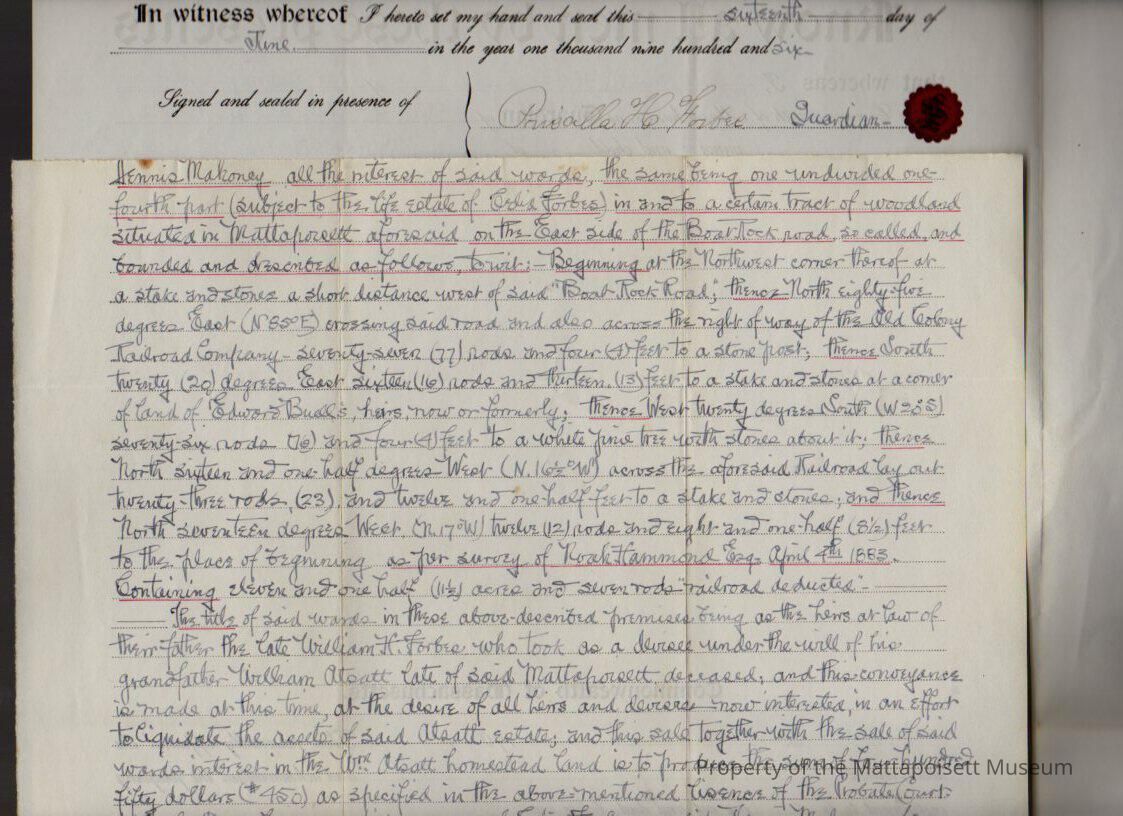 In witness whereof I hereto set my hand and seal this sixteenth day of
June in the year one thousand nine hundred and six
Signed and sealed in presence of
Priscilla H Forbes Guardian
Dennis Mahoney all the interest of said wards, the same being one undivided one-
fourth part (subject to the life estate of Forbes) in and to a certain tract of woodland
situated in Mattapoisett aforesaid on the East side of the Boat Rock road, so called, and
bounded and described as follows, to wit:- Beginning at the Northwest corner thereof at
a stake and stones a short distance west of said "Boat Rock Road"; thence North eighty-five
degrees East (N 85° E) crossing said road and also across the right of way of the Old Colony
Railroad Company - seventy-seven (77) rods and four (4) feet to a stone post; thence South
twenty (20) degrees East sixteen (16) rods and thirteen (13) feet to a stake and stones at a corner
of land of Edward heirs, now or formerly; thence West twenty degrees South (W 20° S)
seventy-six rods (76) and four (4) feet to a white pine tree with stones about it; thence
North sixteen and one-half degrees West (N. 16½° W) across the aforesaid Railroad lay out
twenty-three rods, (23), and twelve and one-half feet to a stake and stones; and thence
North seventeen degrees West (N. 17° W) twelve (12) rods and eight and one-half (8½) feet
to the place of beginning as per survey of Noah Hammond Esq. April 4th 1883.
Containing eleven and one half (11½) acres and seven rods "railroad deducted"-
The title of said wards in these above-described premises being as the heirs at law of
their father the late William H. Forbes who took as a devisee under the will of his
grandfather William Atsatt late of said Mattapoisett deceased, and this conveyance
is made at this time, at the desire of all heirs and devisees now interested, in an effort
to liquidate the assets of said Atsatt estate; and this sale together with the sale of said
wards interest in the Wm. Atsatt homestead land is to produce the sum of Four Hundred
fifty dollars ($450) as specified in the above-mentioned lisence of the Probate Court-
Property of the Mattapoisett Museum